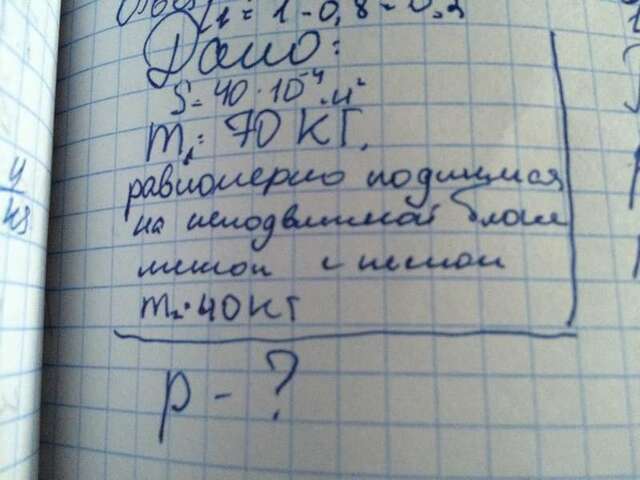 μ = 1 - 0,8 = 0,2
Дано:
S = 40 · 10⁻⁴ м²
m₁ = 70 КГ.
равномерно поднимая
на неподвижной блоке
мешок с песком
m₂ = 40 КГ
p - ?